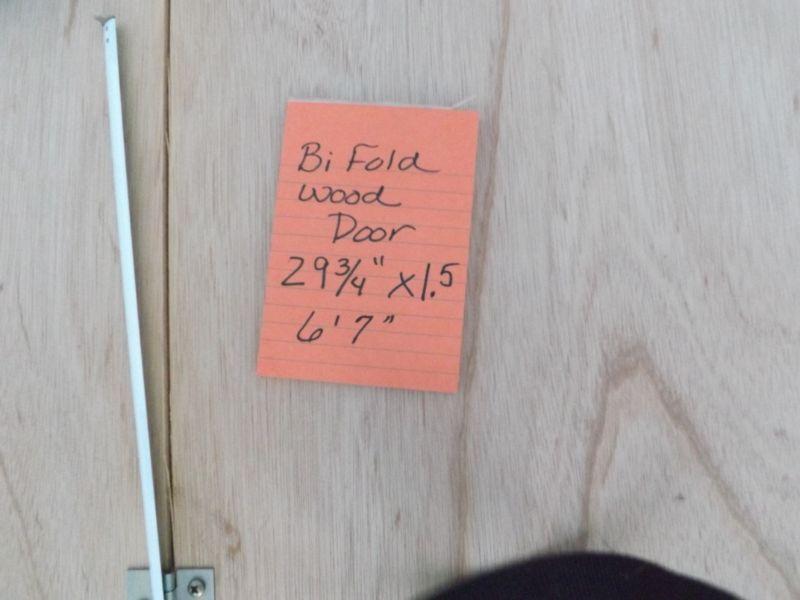 Bi Fold
Wood
Door
29 3/4" x 1.5
6' 7"